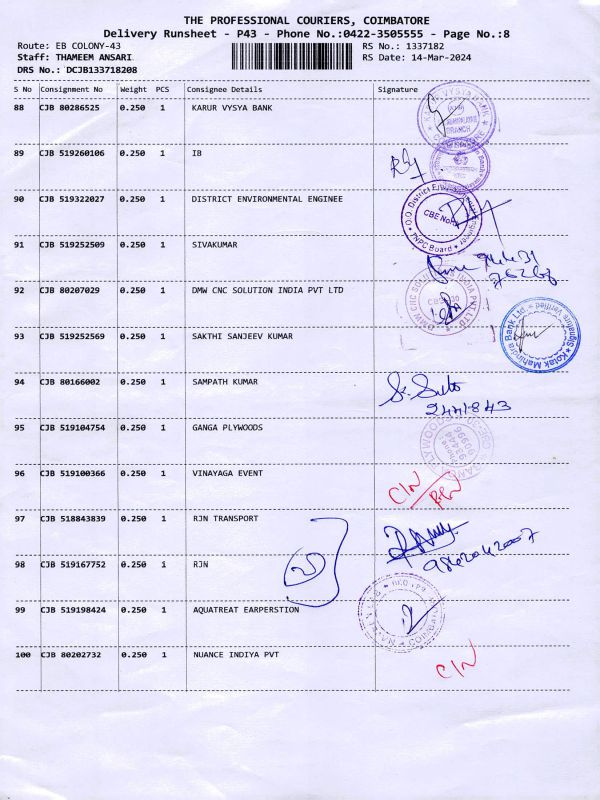 THE PROFESSIONAL COURIERS, COIMBATORE
Delivery Runsheet - P43 - Phone No.:0422-3505555 - Page No.:8
Route: EB COLONY-43 RS No.: 1337182
Staff: THAMEEM ANSARI RS Date: 14-Mar-2024
DRS No.: DCJB133718208
S No Consignment No Weight PCS Consignee Details Signature
88 CJB 80286525 0.250 1 KARUR VYSYA BANK
89 CJB 519260106 0.250 1 IB
90 CJB 519322027 0.250 1 DISTRICT ENVIRONMENTAL ENGINEE
91 CJB 519252509 0.250 1 SIVAKUMAR
92 CJB 80207029 0.250 1 DMW CNC SOLUTION INDIA PVT LTD
93 CJB 519252569 0.250 1 SAKTHI SANJEEV KUMAR
Kotak Mahindra Bank Ltd.
Signature Verified
94 CJB 80166002 0.250 1 SAMPATH KUMAR
2441843
95 CJB 519104754 0.250 1 GANGA PLYWOODS
96 CJB 519100366 0.250 1 VINAYAGA EVENT
C/N
97 CJB 518843839 0.250 1 RJN TRANSPORT
9862042007
98 CJB 519167752 0.250 1 RJN
99 CJB 519198424 0.250 1 AQUATREAT EARPERSTION
100 CJB 80202732 0.250 1 NUANCE INDIYA PVT
C/N